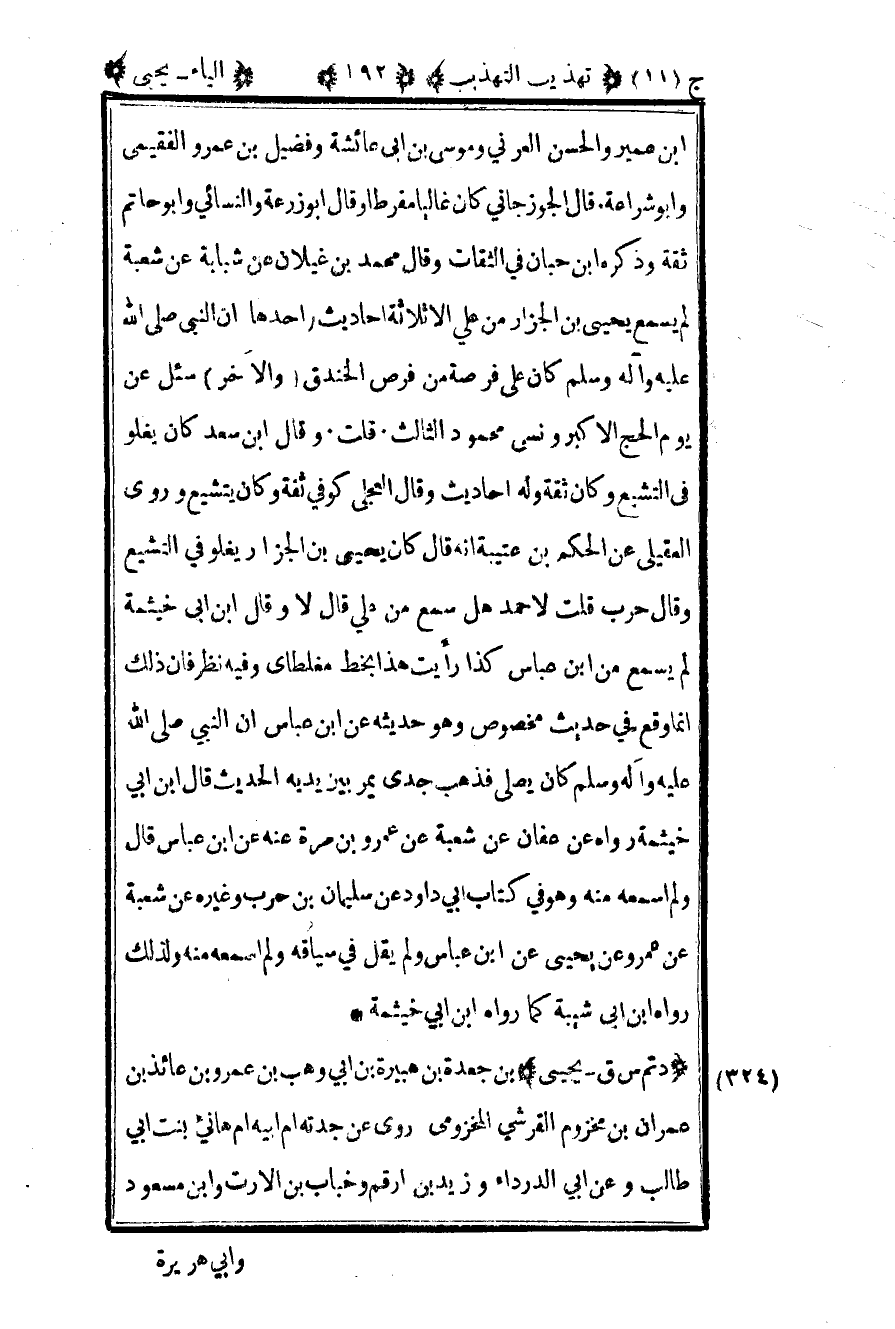 ج (١١) ﴿ تهذيب التهذيب ﴾ ﴿ ١٩٢ ﴾ ﴿ الياء - يحيى ﴾
ابن عمير والحسن العرني وموسى بن ابى عائشة وفضيل بن عمرو الفقيمى
وابو شراعة. قال الجوزجاني كان غاليا مفرطا وقال ابو زرعة والنسائي وابو حاتم
ثقة وذكره ابن حبان في الثقات وقال محمد بن غيلان عن شبابة عن شعبة
لم يسمع يحيى بن الجزار من علي الا ثلاثة احاديث (احدها ان النبي صلى الله
عليه وآله وسلم كان على فرصة من فرص الخندق (والآخر) سئل عن
يوم الحج الاكبر ونسى محمود الثالث . قلت . وقال ابن سعد كان يغلو
فى التشيع وكان ثقة وله احاديث وقال العجلى كوفي ثقة وكان يتشيع وروى
العقيلى عن الحكم بن عتيبة انه قال كان يحيى بن الجزار يغلو في التشيع
وقال حرب قلت لاحمد هل سمع من علي قال لا وقال ابن ابى خيثمة
لم يسمع من ابن عباس كذا رأيت هذا بخط مغلطاى وفيه نظر فان ذلك
انما وقع في حديث مخصوص وهو حديثه عن ابن عباس ان النبي صلى الله
عليه وآله وسلم كان يصلى فذهب جدى يمر بين يديه الحديث قال ابن ابي
خيثمة رواه عن عفان عن شعبة عن عمرو بن مرة عنه عن ابن عباس قال
ولم اسمعه منه وهو في كتاب ابي داود عن سليمان بن حرب وغيره عن شعبة
عن عمرو عن يحيى عن ابن عباس ولم يقل في سياقه ولم اسمعه منه ولذلك
رواه ابن ابى شيبة كما رواه ابن ابي خيثمة *
(٣٢٤) ﴿ د تم س ق - يحيى ﴾ بن جعدة بن هبيرة بن ابي وهب بن عمرو بن عائذ بن
عمران بن مخزوم القرشي المخزومى روى عن جدته ام ابيه ام هانئ بنت ابي
طالب و عن ابي الدرداء و زيد بن ارقم وخباب بن الارت وابن مسعود
وابي هريرة